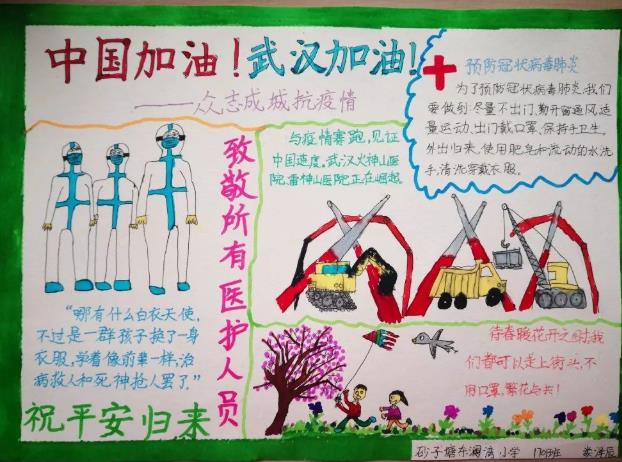 中国加油!武汉加油!
——众志成城抗疫情
预防冠状病毒肺炎
为了预防冠状病毒肺炎,我们
要做到:尽量不出门,勤开窗通风,适
量运动,出门戴口罩,保持手卫生,
外出归来,使用肥皂和流动的水洗
手,清洗穿戴衣服。
与疫情赛跑,见证
中国速度,武汉火神山医
院,雷神山医院正在崛起。
致敬所有医护人员
“哪有什么白衣天使,
不过是一群孩子换了一身
衣服,学着像前辈一样,治
病救人和死神抢人罢了。”
祝平安归来
待春暖花开之时,我
们都可以走上街头,不
用口罩,繁花与共!
砂子塘东澜湾小学 1703班